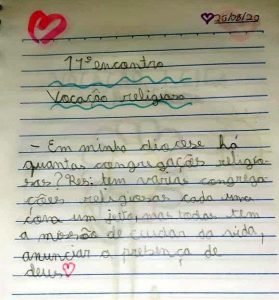 20/08/20
11º encontro
Vocação religiosa
- Em minha diocese há
quantas congregações religio
sas? Res: tem varias congrega
ções religiosas cada uma
com um jeito, mas todas tem
a missão de cuidar da vida,
anunciar a presença de
deus